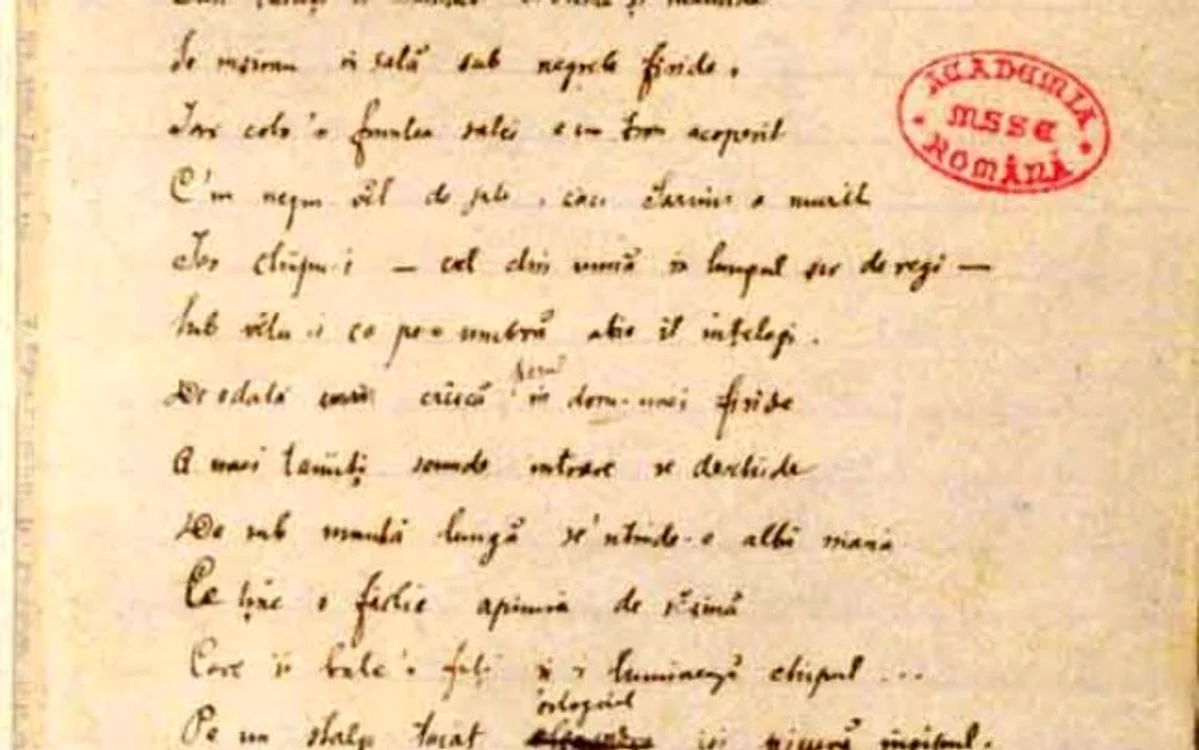 Se mișcau în sală sub negrele firide.
Iar colo 'n fruntea salei e un tron acoperit
C'un negru vĕl de jale, căci Sarmis a murit
Iar chipu-i — cel din urmă în lungul șir de regi —
Sub vĕlu-i ca pe-o umbră abia îl înțelegi.
De odată crâșcă ferul în dom. unei firide
A unei tainiți scunde intrare se deschide
De sub manta lungă se 'ntinde-o albă mână
Ce ține o făclie aprinsă de rĕșină
Care îi bate 'n față și-i luminează chipul ...
Pe un stâlp tăcut orologiul își mișură nisipul.
ACADEMIA
MSSE
ROMÂNĂ